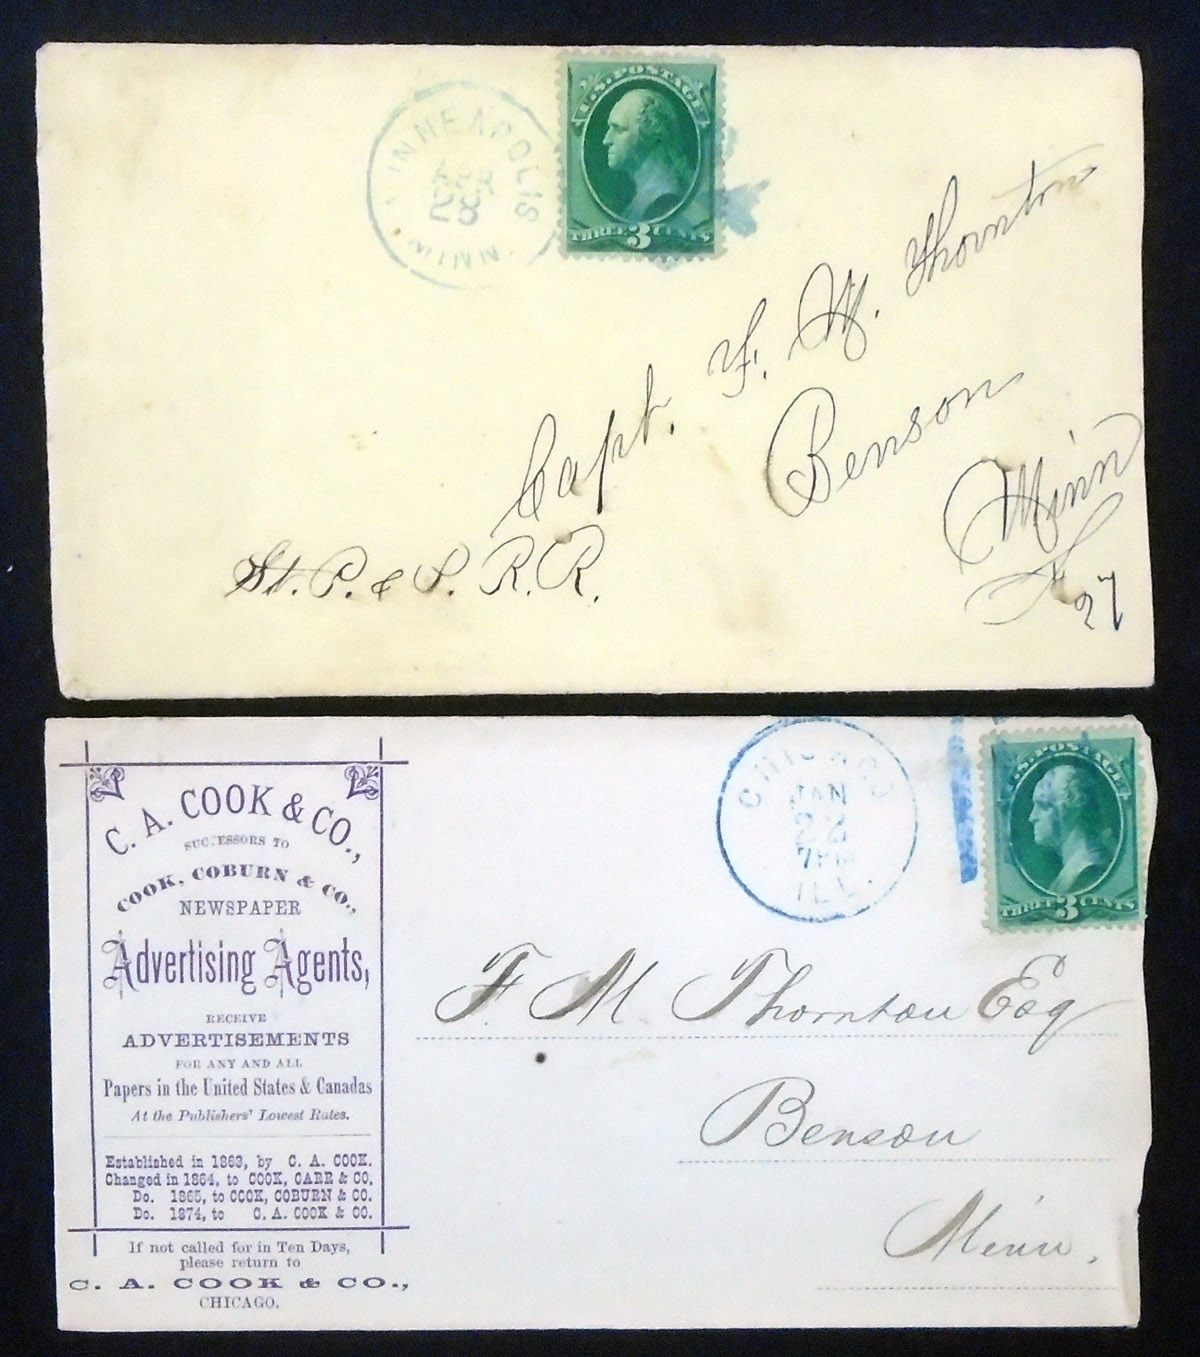 MINNEAPOLIS
APR
28
MINN.
U.S. POSTAGE
THREE 3 CENTS
Capt. F. M. Thornton
Benson
Minn
St. P. & P. R.R.
27
C. A. COOK & CO.,
SUCCESSORS TO
COOK, COBURN & CO.,
NEWSPAPER
Advertising Agents,
RECEIVE
ADVERTISEMENTS
FOR ANY AND ALL
Papers in the United States & Canadas
At the Publishers' Lowest Rates.
Established in 1863, by C. A. COOK.
Changed in 1864, to COOK, CARR & CO.
Do. 1865, to COOK, COBURN & CO.
Do. 1874, to C. A. COOK & CO.
If not called for in Ten Days,
please return to
C. A. COOK & CO.,
CHICAGO.
CHICAGO
JAN
22
7 PM
ILL.
U.S. POSTAGE
THREE 3 CENTS
F. M. Thornton Esq
Benson
Minn.